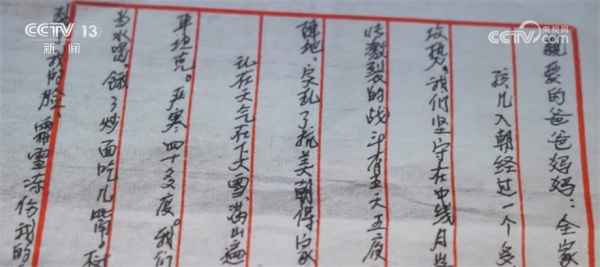 CCTV 13
新闻
CCTV 央视网
com
亲爱的爸爸妈妈：全家
孩儿入朝经过一个多
攻势。我们坚守在中线月
激烈的战斗有五天五夜
阵地，了抗美朝得家
乱在天气在下大雪满山遍
坦克。严寒四十多度。我们
当水喝，饿了炒面吃几嘴。
我的脸，霜雪冻伤我的